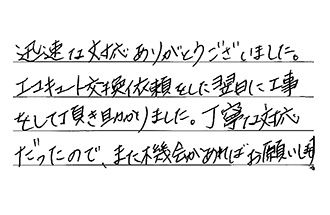 迅速な対応ありがとうございました。
エコキュート交換依頼をした翌日に工事
をして頂き助かりました。丁寧な対応
だったので、また機会があればお願いします!